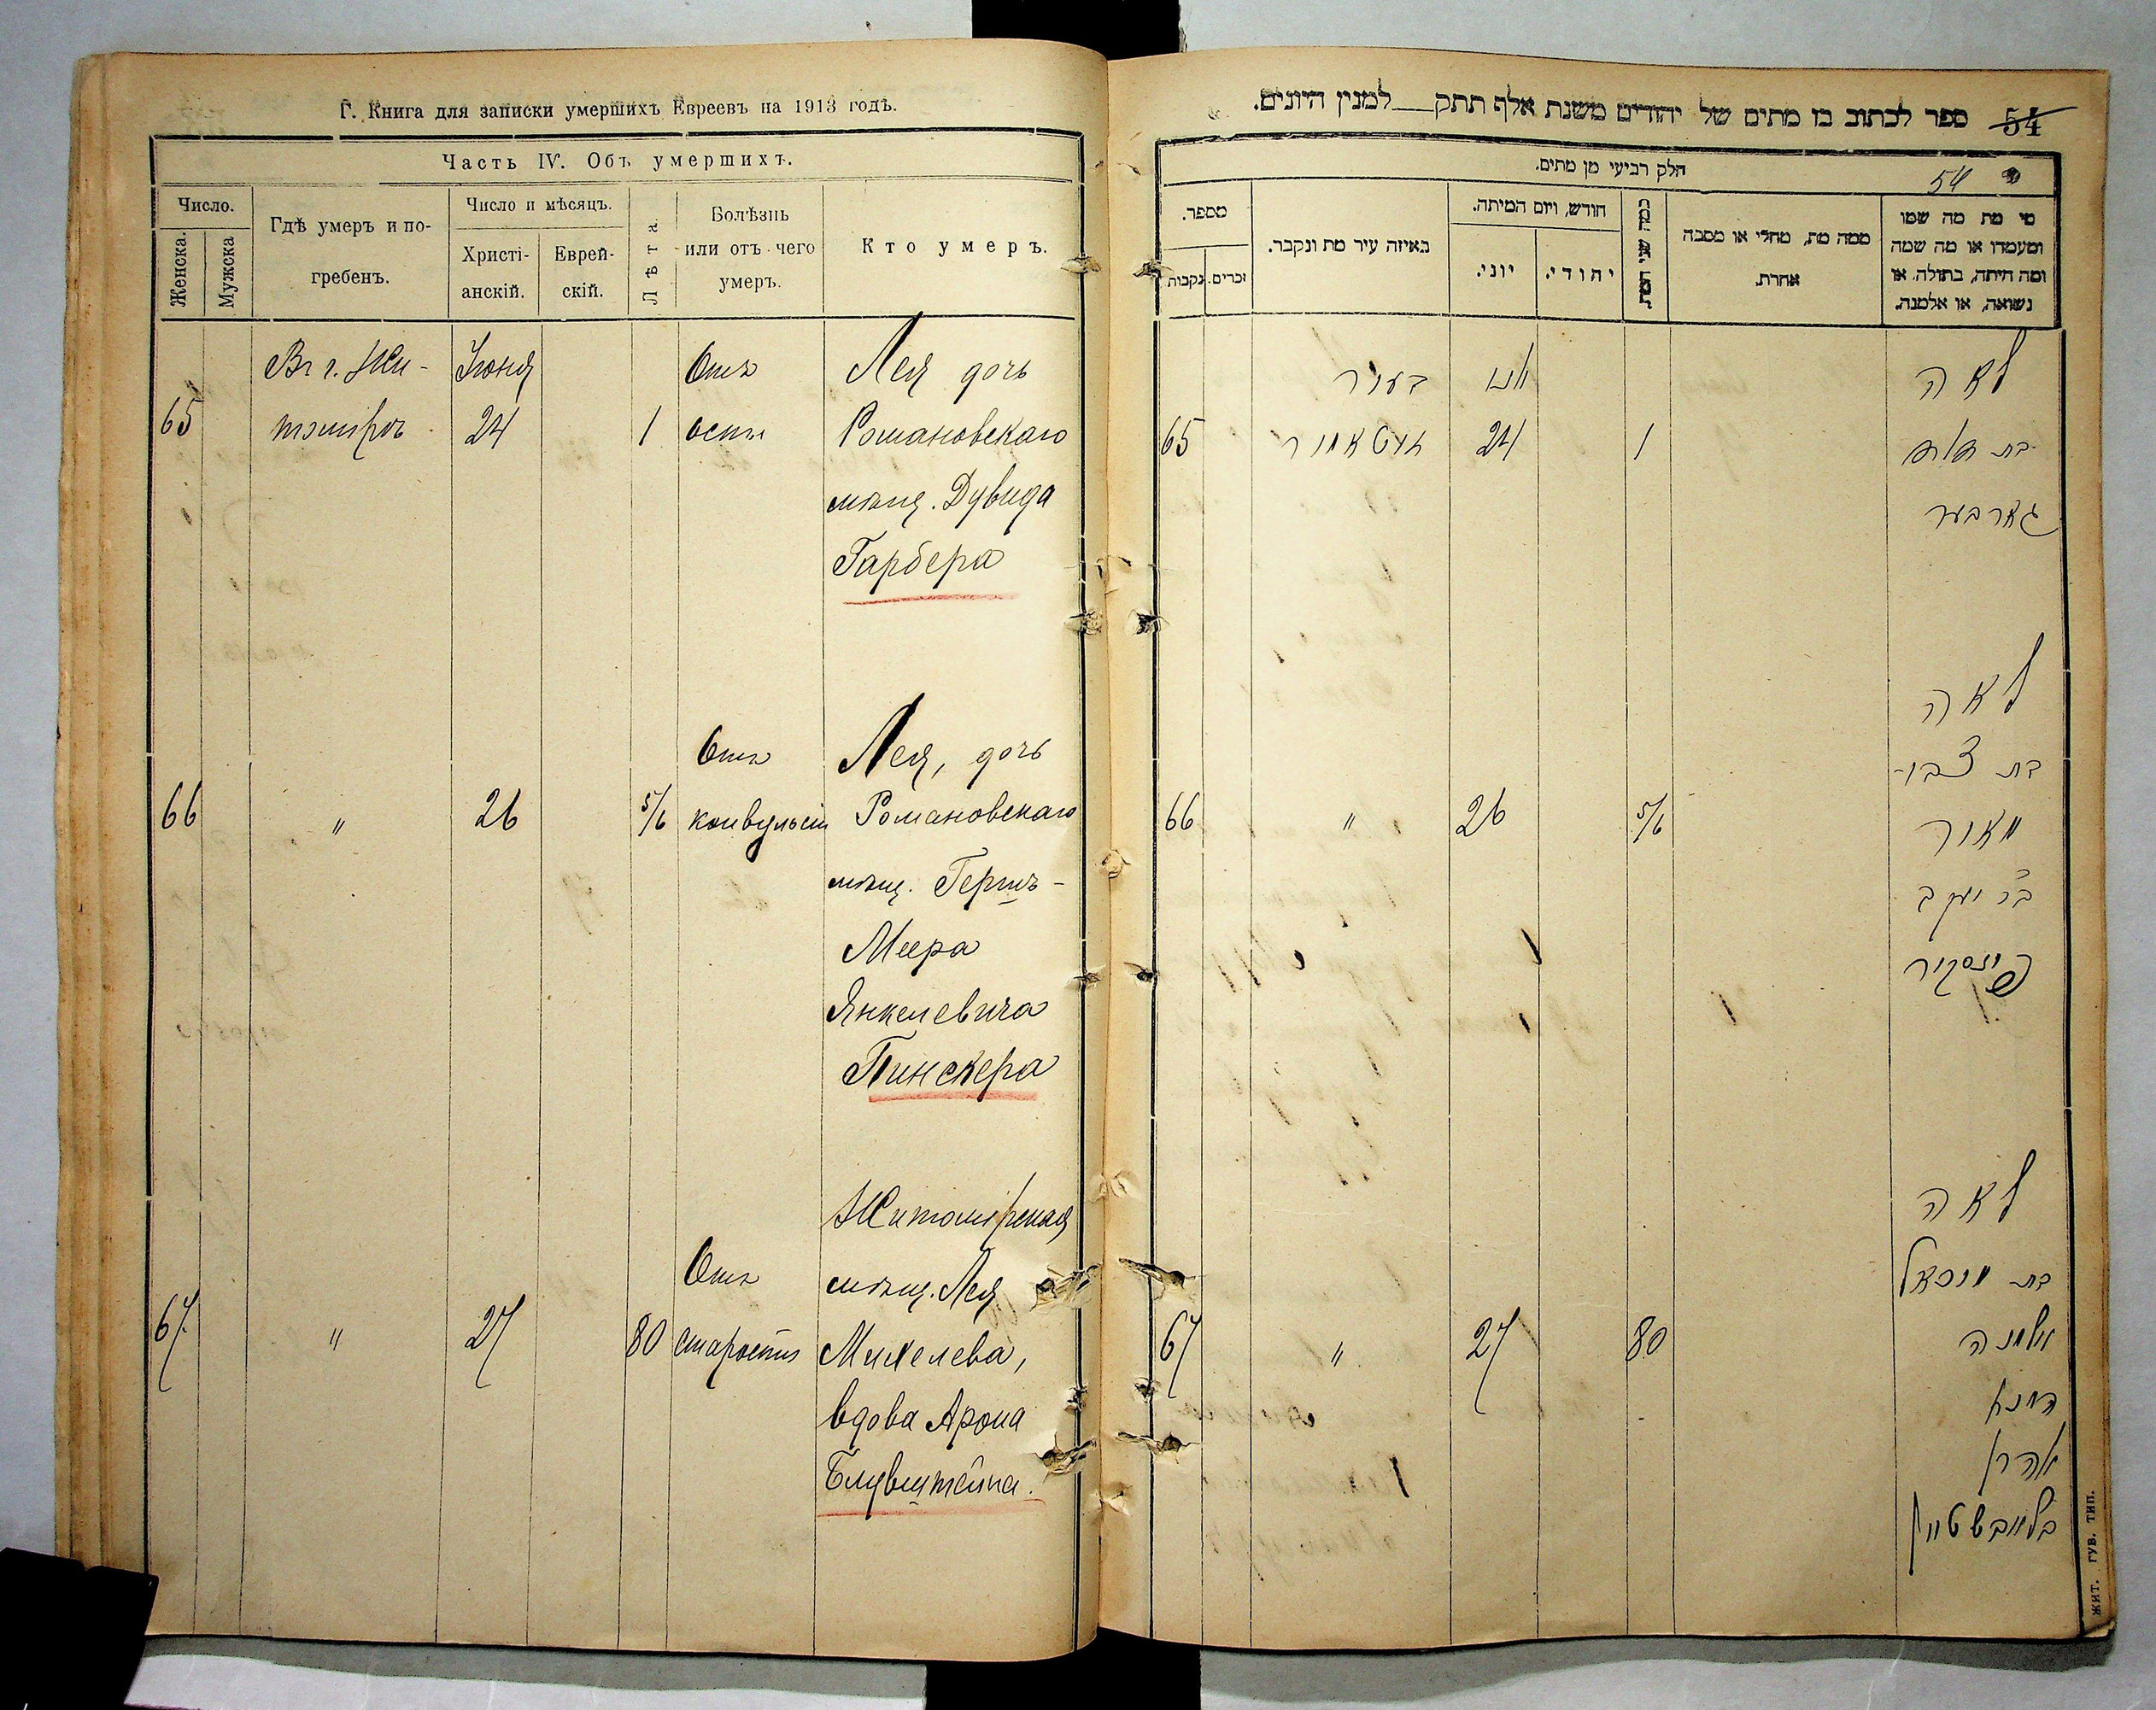 Г. Книга для записки умершихъ Евреевъ на 1913 годъ.
Часть IV. Объ умершихъ.
Число.
Женска.
Мужска
Гдѣ умеръ и по-
гребенъ.
Число и мѣсяцъ.
Христі-
анскій.
Еврей-
скій.
Лѣта.
Болѣзнь
или отъ чего
умеръ.
Кто умеръ.
65
Въ г. Жи-
томірѣ
Іюня
24
1
Отъ
оспы
Лея дочь
Романовскаго
мѣщ. Дувида
Гарбера
66
"
26
5/6
Отъ
конвульсіи
Лея, дочь
Романовскаго
мѣщ. Гершъ-
Меера
Янкелевича
Пинскера
67
"
27
80
Отъ
старости
Житомірская
мѣщ. Лея
Михелева,
вдова Арона
Блувштейна.
ספר לכתוב בו מתים של יהודים משנת אלף תתק למנין היונים.
54
חלק רביעי מן מתים.
54
מספר.
נקבות
זכרים.
באיזה עיר מת ונקבר.
חודש, ויום המיתה.
יוני.
יהודי.
כמה שני המת
ממה מת, מחלי או מסבה
אחרת.
מי מת מה שמו
ומעמדו או מה שמה
ומה היתה, בתולה או
נשואה, או אלמנה.
65
בעיר
24
1
לאה
בת
גארבער
66
"
26
5/6
לאה
בת צבי-
מאיר
בר יעקב
פינסקיר
67
"
27
80
לאה
בת מיכאל
אלמנה
אהרן
בלויבשטיין
ЖИТ. ГУБ. ТИП.